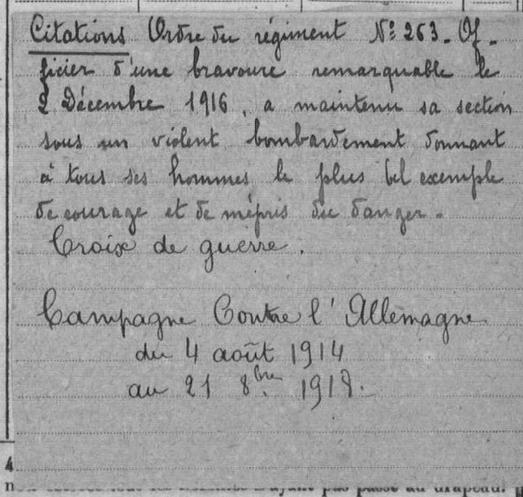 Citations Ordre du régiment Nº 263. Of-
ficier d'une bravoure remarquable le
2 Décembre 1916, a maintenu sa section
sous un violent bombardement donnant
à tous ses hommes le plus bel exemple
de courage et de mépris du danger.
Croix de guerre.
Campagne Contre l'Allemagne
du 4 août 1914
au 21 8bre 1918.
4
n
ayant pas passé au drapeau.